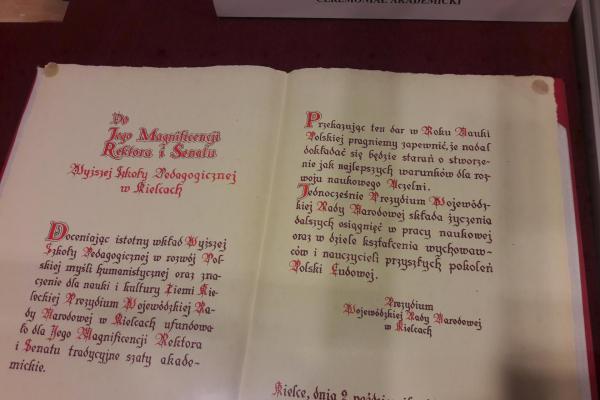 CEREMONIAŁ AKADEMICKI
Do
Jego Magnificencji
Rektora i Senatu
Wyższej Szkoły Pedagogicznej
w Kielcach
Doceniając istotny wkład Wyższej
Szkoły Pedagogicznej w rozwój Pol-
skiej myśli humanistycznej oraz zna-
czenie dla nauki i kultury Ziemi Kie-
leckiej Prezydium Wojewódzkiej Ra-
dy Narodowej w Kielcach ufundowa-
ło dla Jego Magnificencji Rektora
i Senatu tradycyjne szaty akade-
mickie.
Przekazując ten dar w Roku Nauki
Polskiej pragniemy zapewnić, że nadal
dokładać się będzie starań o stworze-
nie jak najlepszych warunków dla roz-
woju naukowego Uczelni.
Jednocześnie Prezydium Wojewódz-
kiej Rady Narodowej składa życzenia
dalszych osiągnięć w pracy naukowej
oraz w dziele kształcenia wychowaw-
ców i nauczycieli przyszłych pokoleń
Polski Ludowej.
Prezydium
Wojewódzkiej Rady Narodowej
w Kielcach
Kielce, dnia